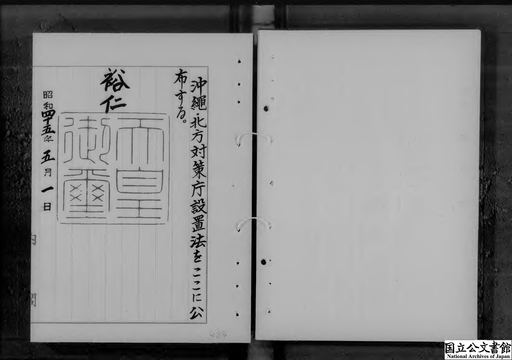 沖繩・北方対策庁設置法をここに公
布する。
裕仁
天皇
御璽
昭和四十五年五月一日
内閣
国立公文書館
National Archives of Japan